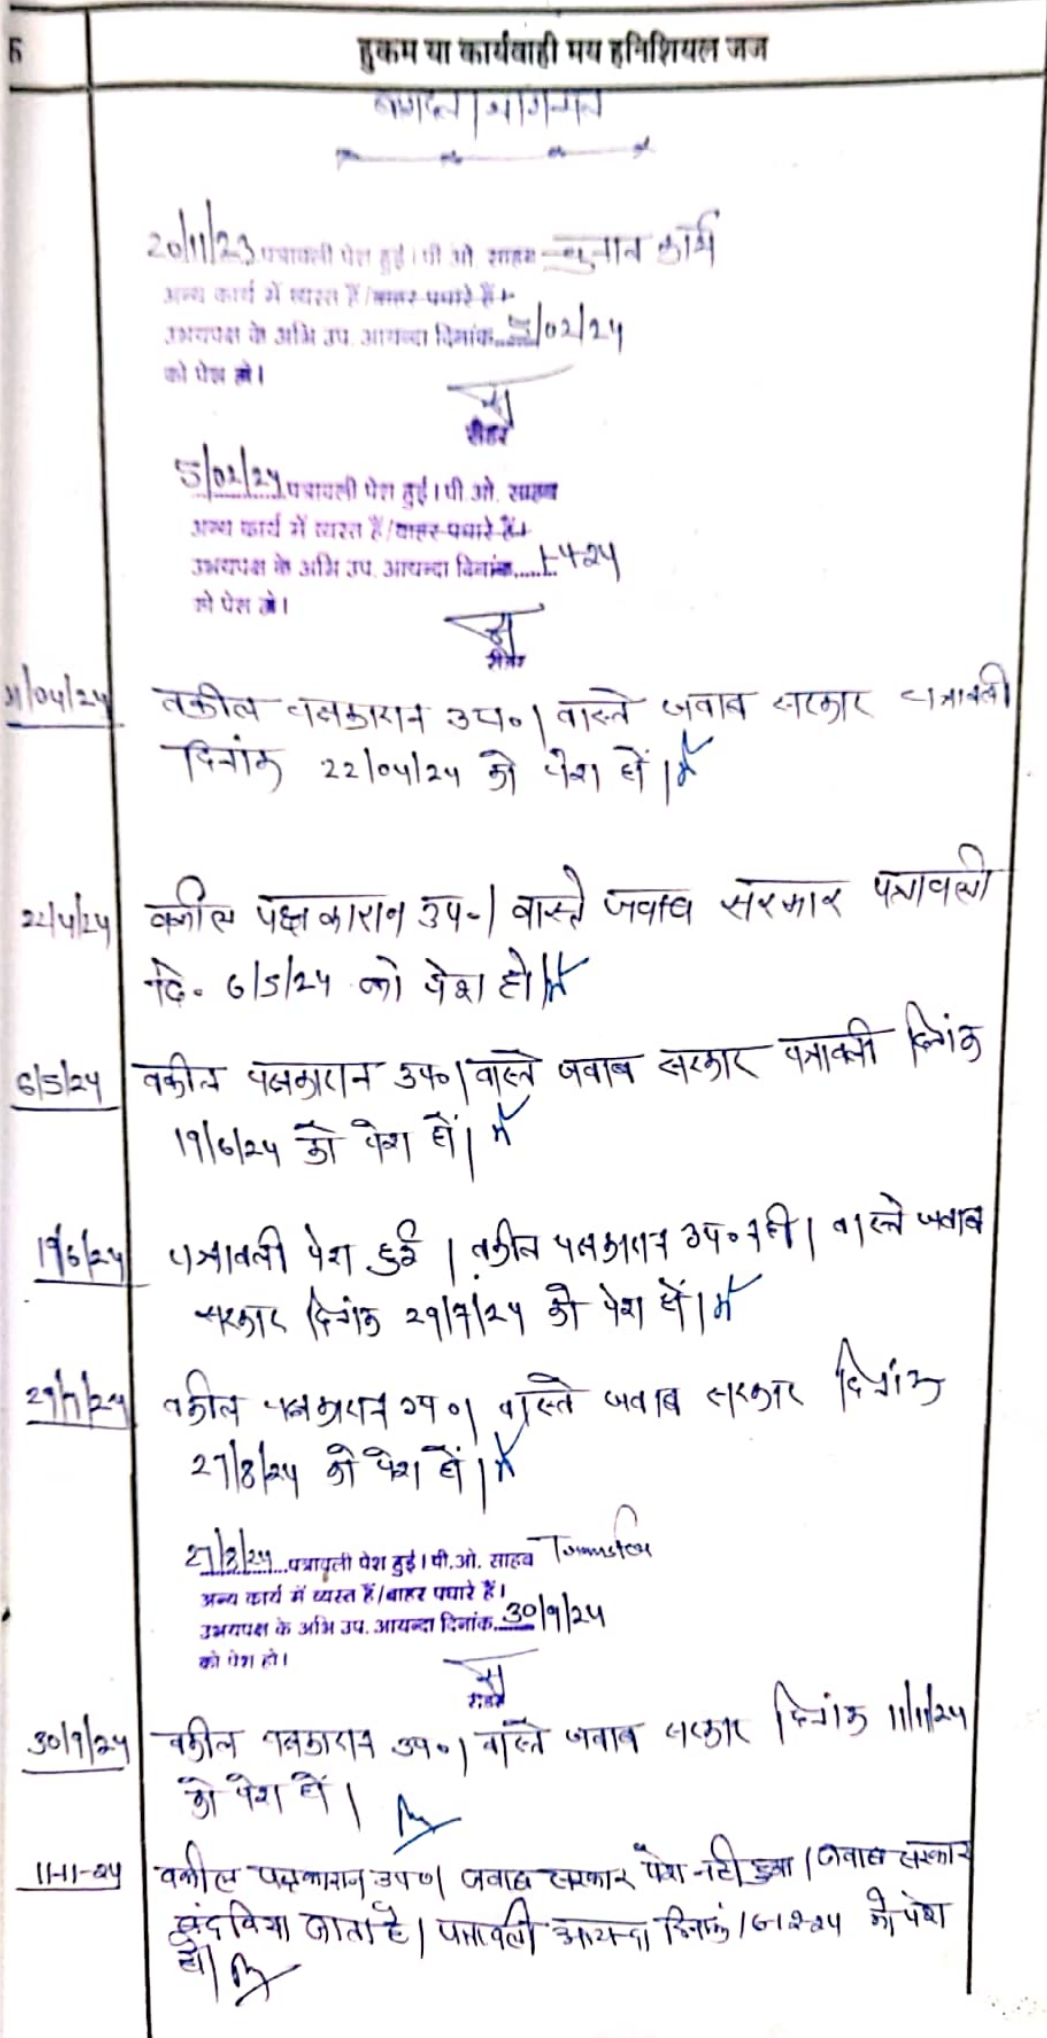 हुकम या कार्यवाही मय इनिशियल जज
20/11/23 पत्रावली पेश हुई। पी.ओ. साहब चुनाव कार्य
अन्य कार्य में व्यस्त हैं/बाहर पधारे हैं।
उभयपक्ष के अभि उप. आयन्दा दिनांक 5/02/24
को पेश हो।
रीडर
5/02/24 पत्रावली पेश हुई। पी.ओ. साहब
अन्य कार्य में व्यस्त हैं/बाहर पधारे हैं।
उभयपक्ष के अभि उप. आयन्दा दिनांक......1-4-24
को पेश हो।
रीडर
/04/24 वकील पक्षकारान उप०। वास्ते जवाब सरकार पत्रावली
दिनांक 22/04/24 को पेश हों।
22/4/24 वकील पक्षकारान उप-। वास्ते जवाब सरकार पत्रावली
दि. 6/5/24 को पेश हो।
6/5/24 वकील पक्षकारान उप०। वास्ते जवाब सरकार पत्रावली दिनांक
19/6/24 को पेश हों।
19/6/24 पत्रावली पेश हुई। वकील पक्षकारान उप० नही। वास्ते जवाब
सरकार दिनांक 29/7/24 को पेश हों।
29/7/24 वकील पक्षकारान उप०। वास्ते जवाब सरकार दिनांक
27/8/24 को पेश हों।
27/8/24 पत्रावली पेश हुई। पी.ओ. साहब Transfer
अन्य कार्य में व्यस्त हैं/बाहर पधारे हैं।
उभयपक्ष के अभि उप. आयन्दा दिनांक. 30/9/24
को पेश हो।
रीडर
30/9/24 वकील पक्षकारान उप०। वास्ते जवाब सरकार दिनांक 11/11/24
को पेश हों।
11-11-24 वकील पक्षकारान उप०। जवाब सरकार पेश नही हुआ। जवाब सरकार
बंद किया जाता है। पत्रावली आयन्दा दिनांक 16-12-24 को पेश
हो।